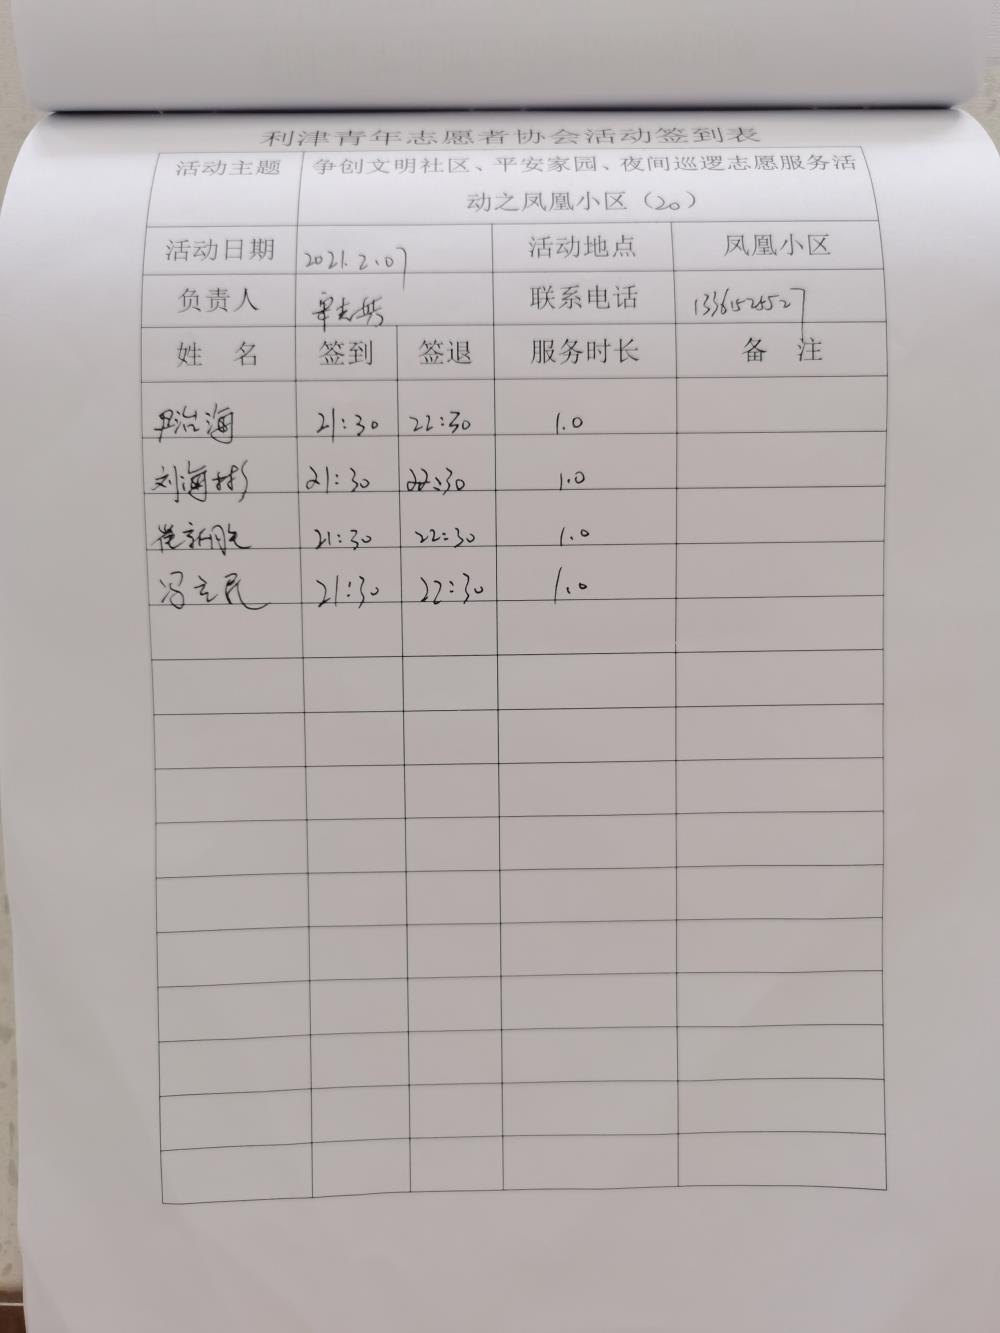 利津青年志愿者协会活动签到表
活动主题 争创文明社区、平安家园、夜间巡逻志愿服务活
动之凤凰小区（20）
活动日期 2021.2.07 活动地点 凤凰小区
负责人 联系电话 13361525527
姓 名 签到 签退 服务时长 备 注
尹治海 21:30 22:30 1.0
刘海彬 21:30 22:30 1.0
崔新胜 21:30 22:30 1.0
冯立民 21:30 22:30 1.0